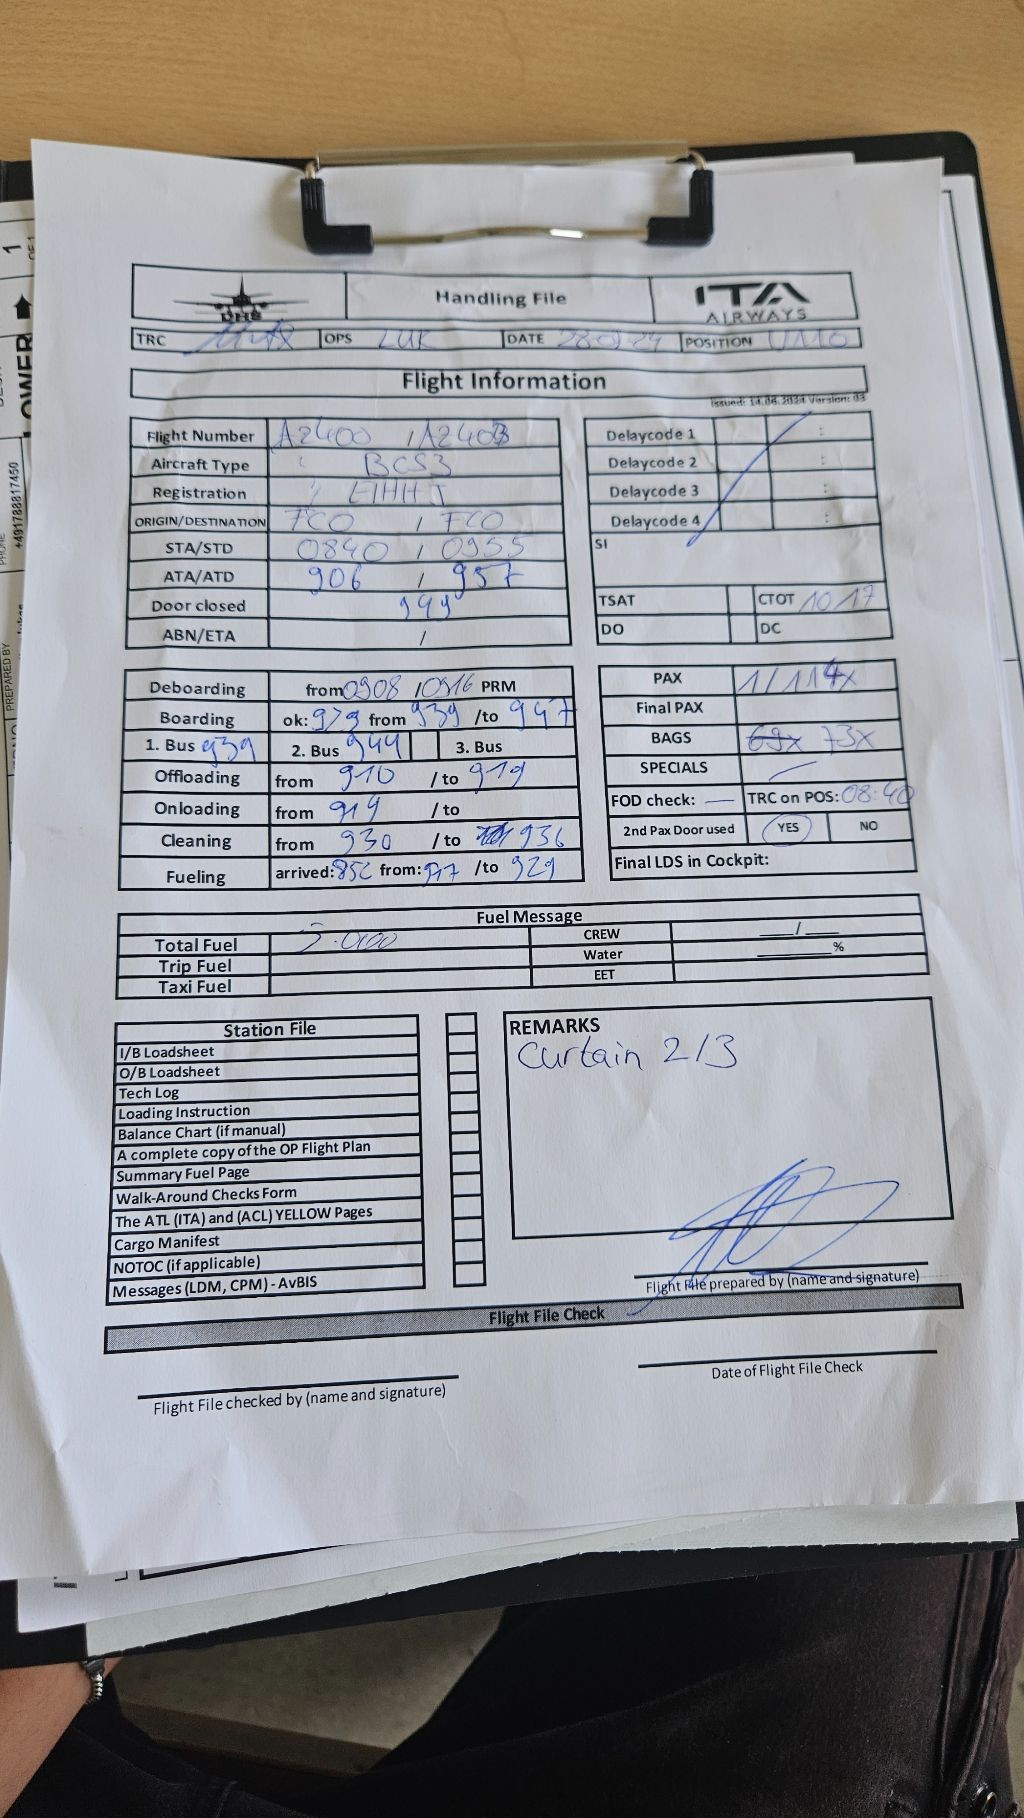 DHS Handling File ITA AIRWAYS
TRC OPS LUK DATE POSITION
Flight Information
Issued: 14.06.2024 Version: 03
Flight Number A2400 /
Aircraft Type BCS3
Registration
ORIGIN/DESTINATION FCO / FCO
STA/STD 0840 / 0955
ATA/ATD 906 / 957
Door closed 949
ABN/ETA /
Delaycode 1 :
Delaycode 2 :
Delaycode 3 :
Delaycode 4 :
SI
TSAT CTOT 1017
DO DC
Deboarding from 0908 / 0916 PRM
Boarding ok: 929 from 939 /to 947
1. Bus 939 2. Bus 944 3. Bus
Offloading from 910 / to 919
Onloading from 919 / to
Cleaning from 930 / to 936
Fueling arrived: 852 from: 917 /to 929
PAX 1/114x
Final PAX
BAGS 69x 73x
SPECIALS —
FOD check: — TRC on POS: 08:40
2nd Pax Door used YES NO
Final LDS in Cockpit:
Fuel Message
Total Fuel CREW __/__
Trip Fuel Water ______%
Taxi Fuel EET
Station File
I/B Loadsheet
O/B Loadsheet
Tech Log
Loading Instruction
Balance Chart (if manual)
A complete copy of the OP Flight Plan
Summary Fuel Page
Walk-Around Checks Form
The ATL (ITA) and (ACL) YELLOW Pages
Cargo Manifest
NOTOC (if applicable)
Messages (LDM, CPM) - AvBIS
REMARKS
Curtain 2/3
Flight File prepared by (name and signature)
Flight File Check
Flight File checked by (name and signature)
Date of Flight File Check
1
LOWER
PHONE
+491788817450
PREPARED BY